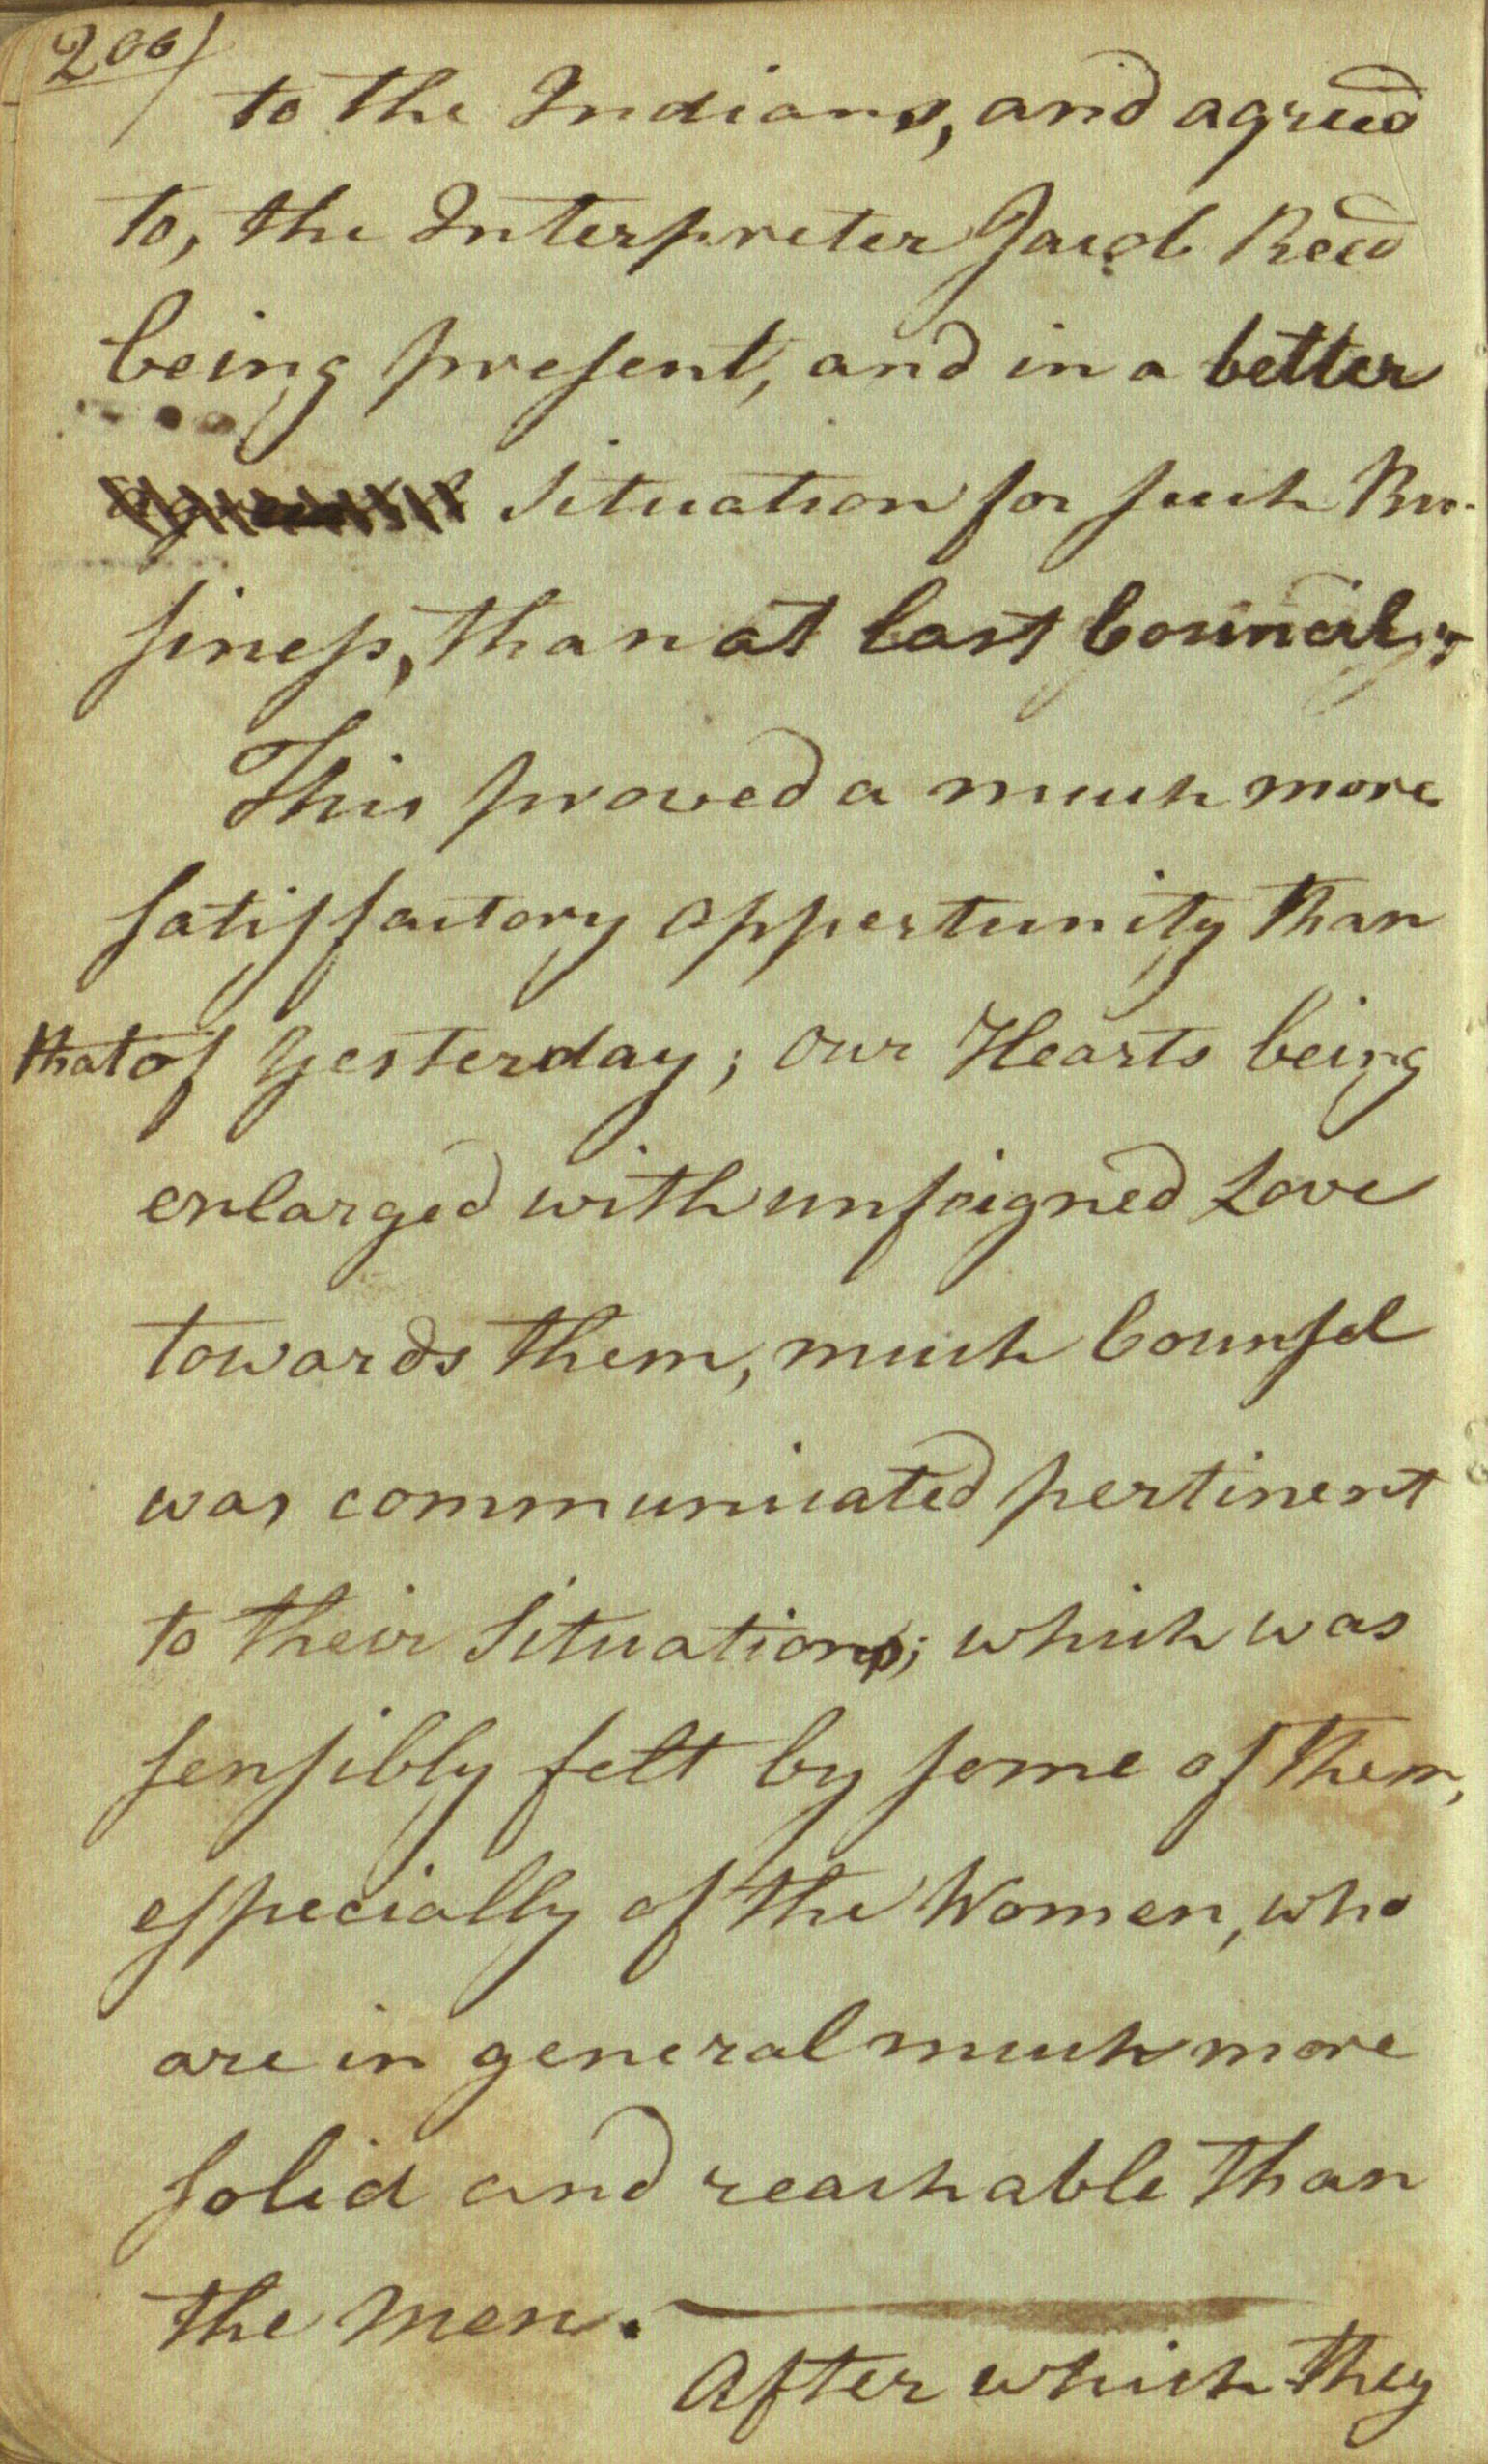 200/
to the Indians, and agreed
to, the Interpreter Jacob Reed
being present, and in a better
Situation for such Bu-
siness, than at last Council;
This proved a much more
satisfactory oppertunity than
that of Yesterday; our Hearts being
enlarged with unfeigned Love
towards them, much Counsel
was communicated pertinent
to their Situations; which was
sensibly felt by some of them,
especially of the Women, who
are in general much more
solid and reachable than
the Men.
After which they